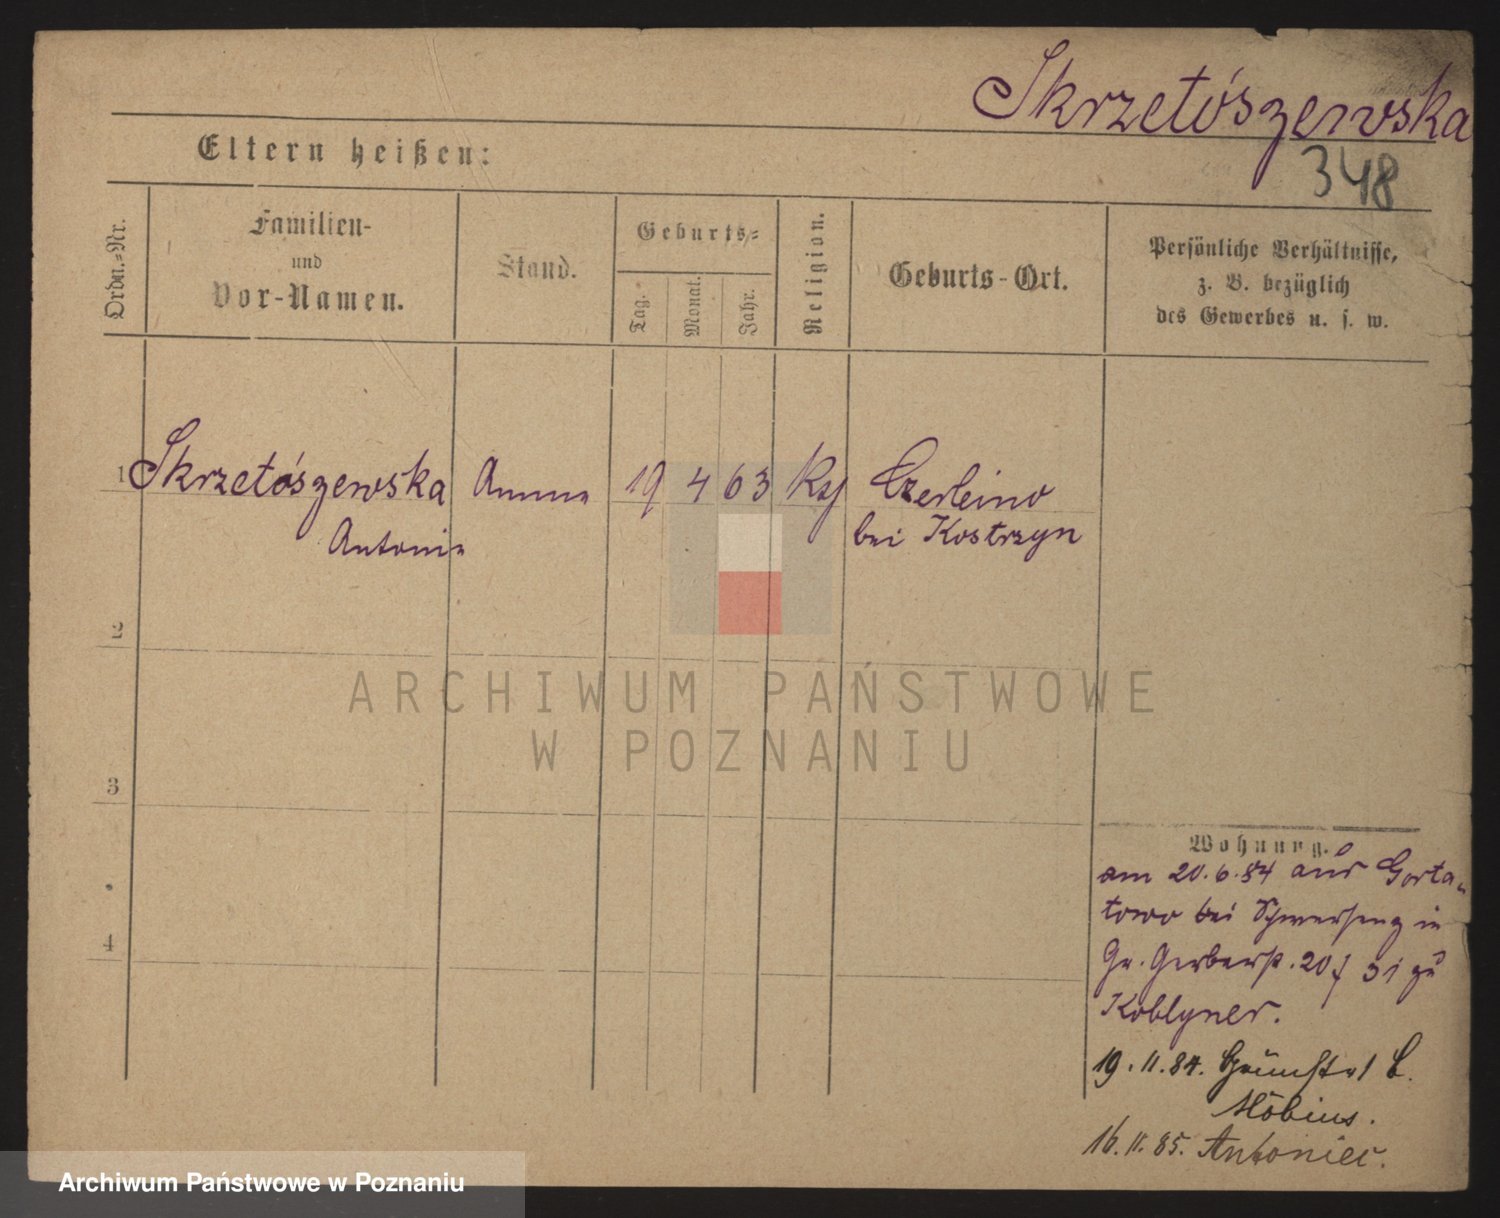 Skrzetószewska
348
Eltern heißen:
Ordn.=Nr.
Familien-
und
Vor-Namen.
Stand.
Geburts=
Tag.
Monat.
Jahr.
Religion.
Geburts-Ort.
Persönliche Verhältnisse,
z. B. bezüglich
des Gewerbes u. s. w.
1 Skrzetószewska Amme 19 4 63 Czerleino
Antonie bei Kostrzyn
2
3
4
Wohnung.
am 20.6.84 aus Gorta-
towo bei Schwersenz in
Gr. Gerberst. 20 31 zu
19.11.84. B.
Möbius.
16.11.85.
ARCHIWUM PAŃSTWOWE
W POZNANIU
Archiwum Państwowe w Poznaniu